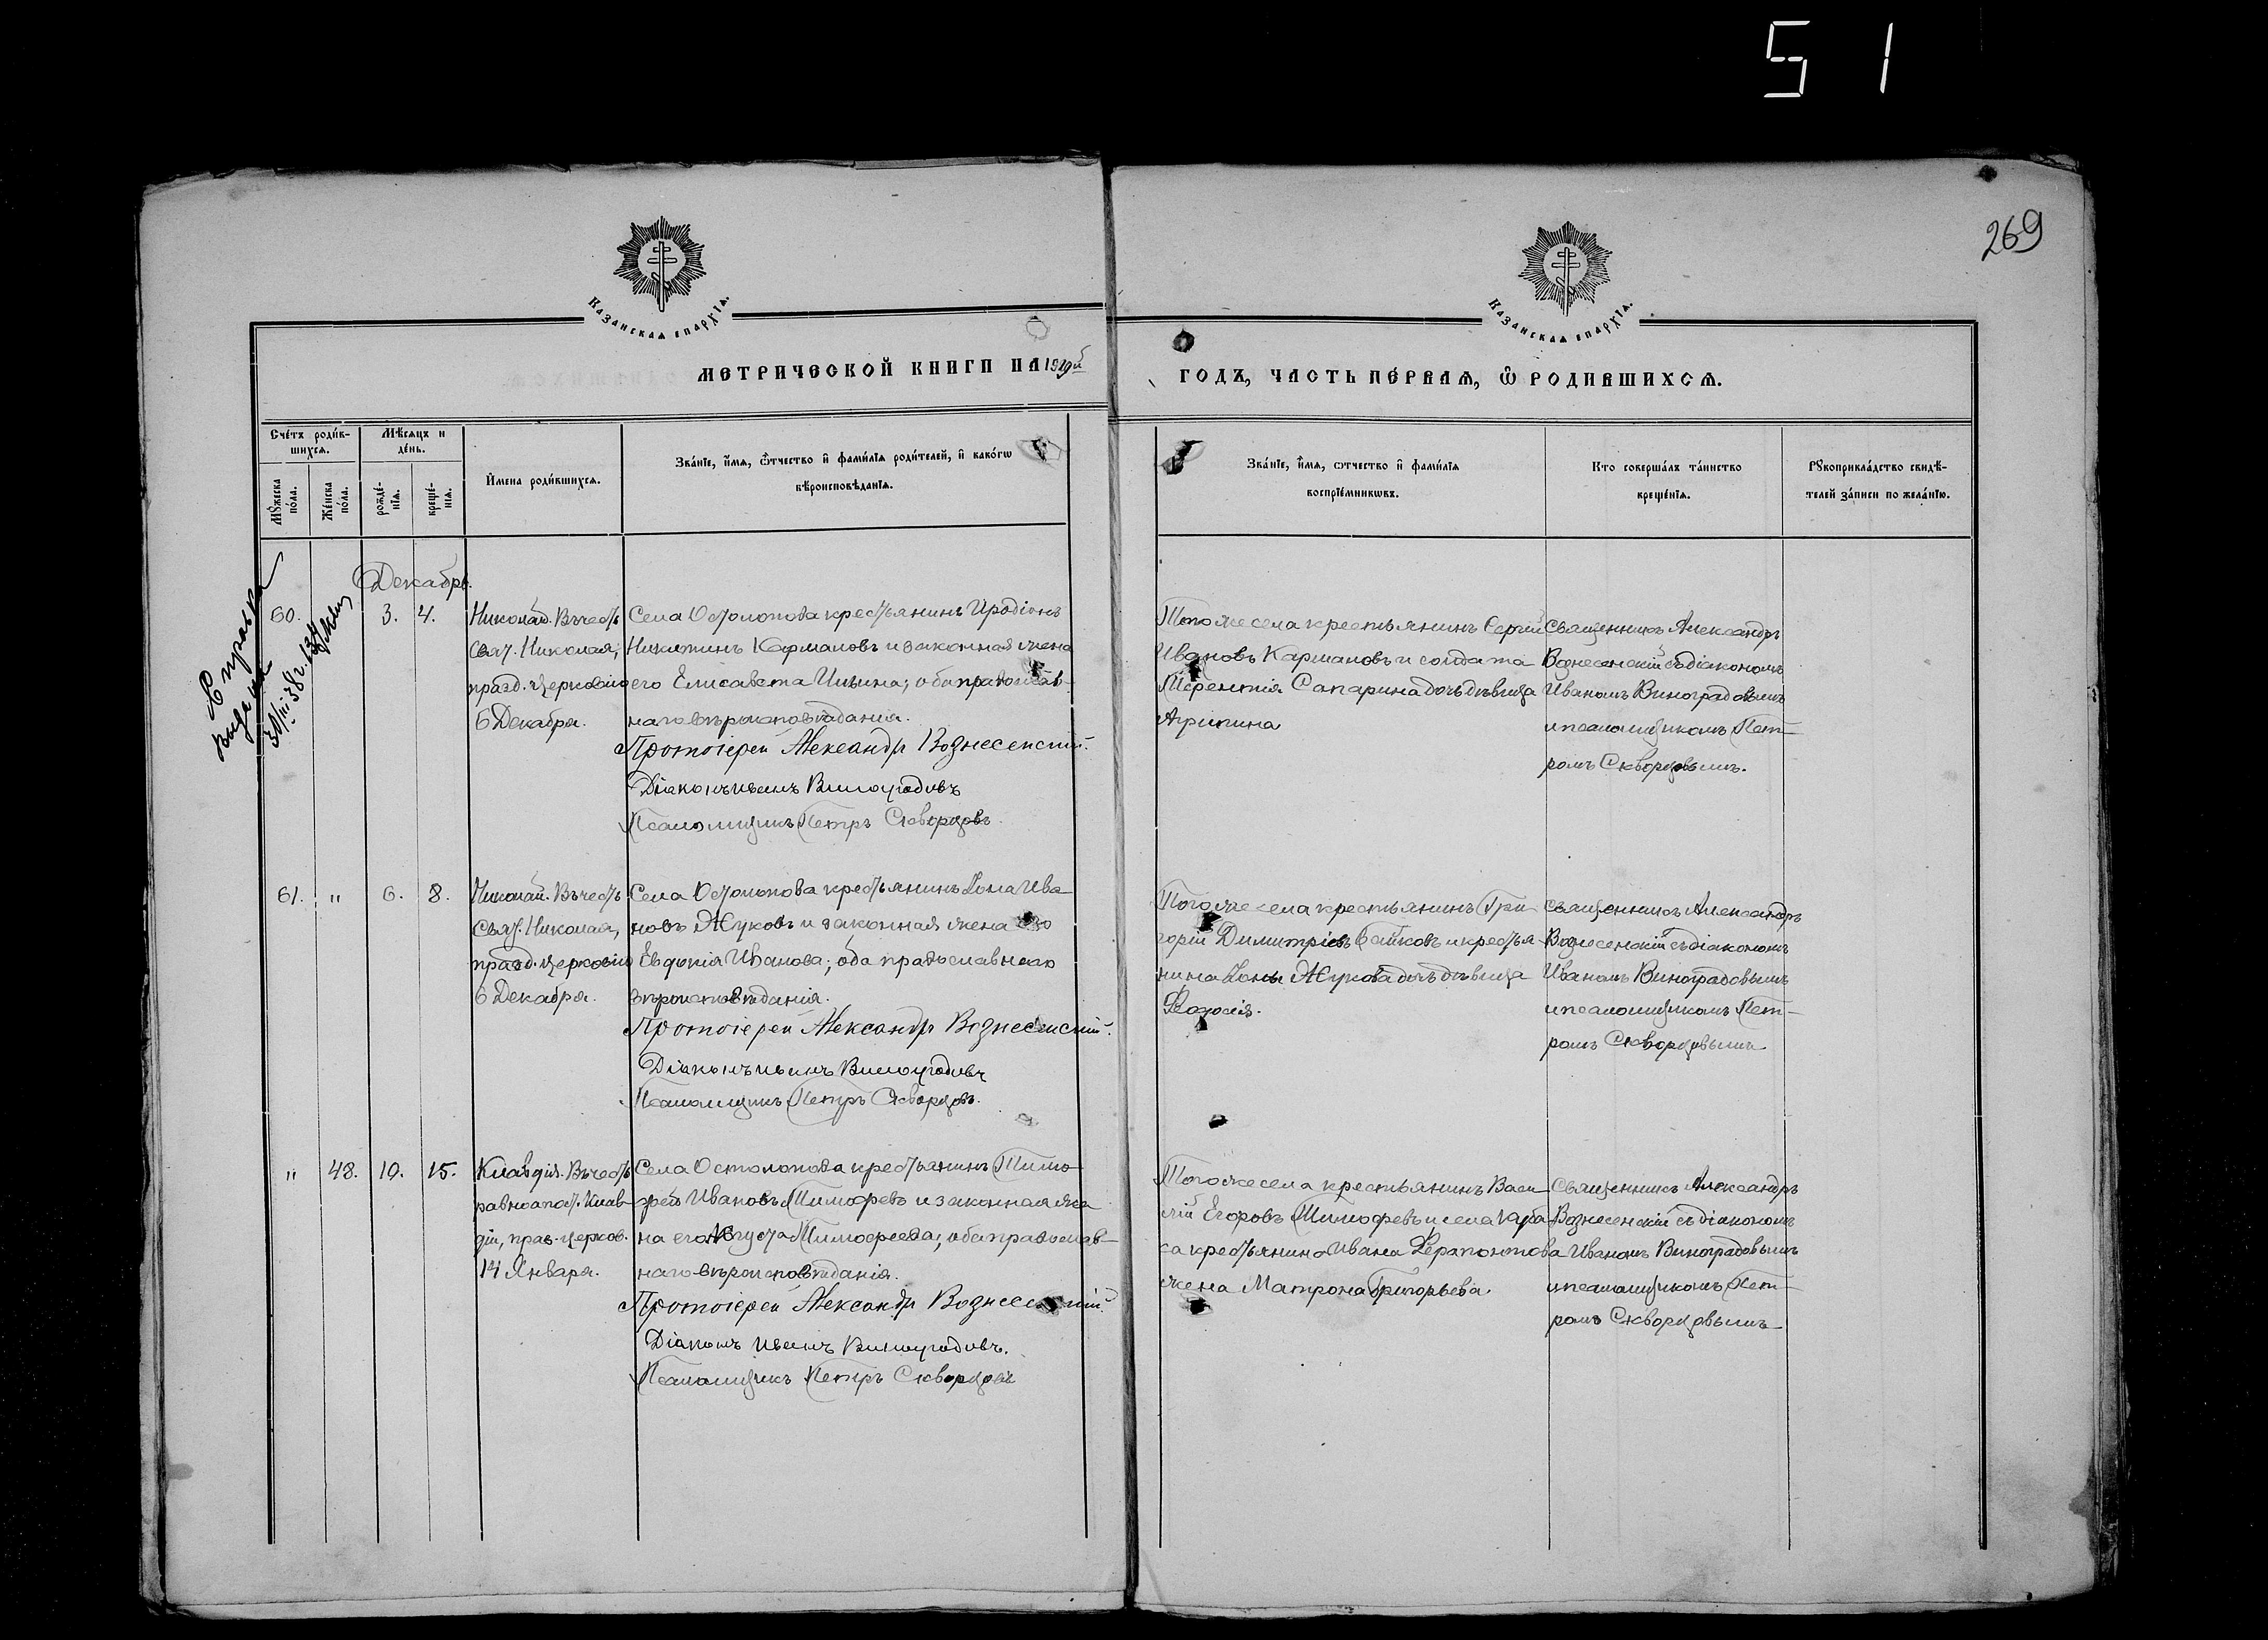 51
269
Казанская епархїя.
Казанская епархїя.
МЕТРИЧЕСКОЙ КНИГИ НА 1919й
ГОДЪ, ЧАСТЬ ПЕ́РВАЯ, Ѡ РОДИВШИХСЯ.
Сче́тъ роди́в-
шихся.
Мѣ́сяцъ и
де́нь.
Мꙋ́жеска
по́ла.
Же́нска
по́ла.
рожде́-
нїя.
креще́-
нїя.
И҆мена роди́вшихся.
Зва́нїе, и҆́мя, ѻ҆́тчество и҆ фами́лїя роди́телей, и҆ како́гѡ
вѣроисповѣ́данїя.
Зва́нїе, и҆́мя, ѻтчество и҆ фами́лїя
воспрїе́мникѡвъ.
Кто соверша́лъ та́инство
креще́нїя.
Рꙋкоприкла́дство свидѣ́-
телей за́писи по жела́нїю.
Справка
выдана
Декабрь.
60. 3. 4.
Николай. Въ честь
Свят. Николая,
празд. церковію
6 Декабря.
Села Остолопова крестьянинъ Иродіонъ
Никитинъ Кармаловъ и законная жена
его Елисавета Ильина; оба православ-
наго вѣроисповѣданія.
Протоіерей Александръ Вознесенскій.
Діаконъ Иванъ Виноградовъ
Псаломщикъ Петръ Скворцовъ.
Того же села крестьянинъ Сергій
Ивановъ Кармаловъ и солдата
Терентія Сапарина дочь дѣвица
Агрипина
Священникъ Александръ
Вознесенскій съ діакономъ
Иваномъ Виноградовымъ
и псаломщикомъ Пет-
ромъ Скворцовымъ.
61. " 6. 8.
Николай. Въ честь
Свят. Николая,
празд. церковію
6 Декабря.
Села Остолопова крестьянинъ Іона Ива
новъ Жуковъ и законная жена его
Евдокія Иванова; оба православнаго
вѣроисповѣданія.
Протоіерей Александръ Вознесенскій.
Діаконъ Иванъ Виноградовъ
Псаломщикъ Петръ Скворцовъ.
Того же села крестьянинъ Гри
горій Димитріевъ и крестья
нина Іоны Жукова дочь дѣвица
Священникъ Александръ
Вознесенскій съ діакономъ
Иваномъ Виноградовымъ
и псаломщикомъ Пет-
ромъ Скворцовымъ
" 48. 10. 15.
Клавдія. Въ честь
равноапост. Клав-
діи, праз. церков.
14 Января.
Села Остолопова крестьянинъ Тимо-
фей Ивановъ Тимофеевъ и законная же
на его Августа Тимофеева; оба православ-
наго вѣроисповѣданія.
Протоіерей Александръ Вознесенскій.
Діаконъ Иванъ Виноградовъ.
Псаломщикъ Петръ Скворцовъ
Того же села крестьянинъ Васи
лій Егоровъ Тимофеевъ и села
са крестьянина Ивана Ферапонтова
жена Матрона Григорьева
Священникъ Александръ
Вознесенскій съ діакономъ
Иваномъ Виноградовымъ
и псаломщикомъ Пет-
ромъ Скворцовымъ